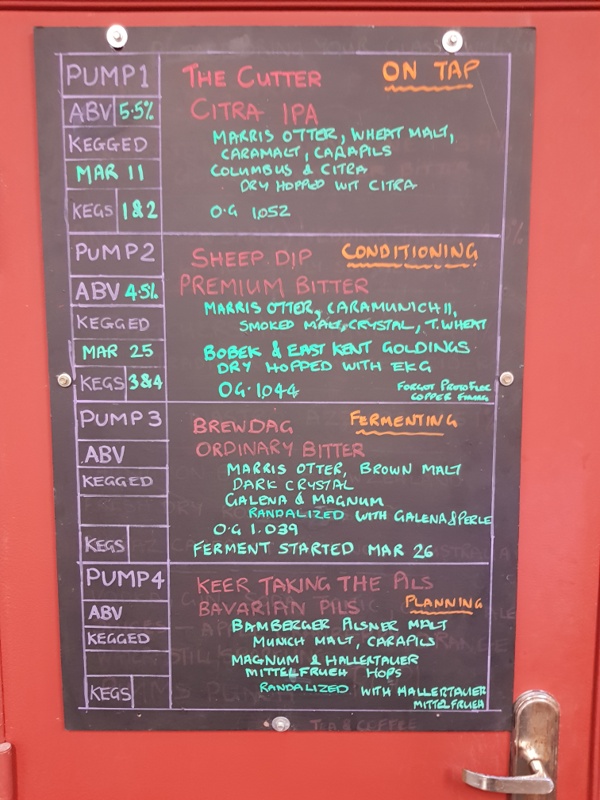 PUMP1 THE CUTTER ON TAP
ABV 5.5% CITRA IPA
KEGGED MARRIS OTTER, WHEAT MALT,
CARAMALT, CARAPILS
MAR 11 COLUMBUS & CITRA
DRY HOPPED WIT CITRA
KEGS 1&2 O.G 1.052
PUMP2 SHEEP DIP CONDITIONING
ABV 4.5% PREMIUM BITTER
MARRIS OTTER, CARAMUNICH II,
KEGGED SMOKED MALT, CRYSTAL, T.WHEAT
MAR 25 BOBEK & EAST KENT GOLDINGS
DRY HOPPED WITH EKG
KEGS 3&4 OG.1044 FORGOT PROTOFLOC
COPPER FININGS
PUMP3 BREWDAG FERMENTING
ABV ORDINARY BITTER
MARRIS OTTER, BROWN MALT
KEGGED DARK CRYSTAL
GALENA & MAGNUM
RANDALIZED WITH GALENA & PERLE
O.G 1.039
KEGS FERMENT STARTED MAR 26
PUMP4 KEER TAKING THE PILS
ABV BAVARIAN PILS PLANNING
BAMBERGER PILSNER MALT
KEGGED MUNICH MALT, CARAPILS
MAGNUM & HALLERTAUER
MITTELFRUEH HOPS
KEGS RANDALIZED WITH HALLERTAUER
MITTELFRUEH
TEA & COFFEE